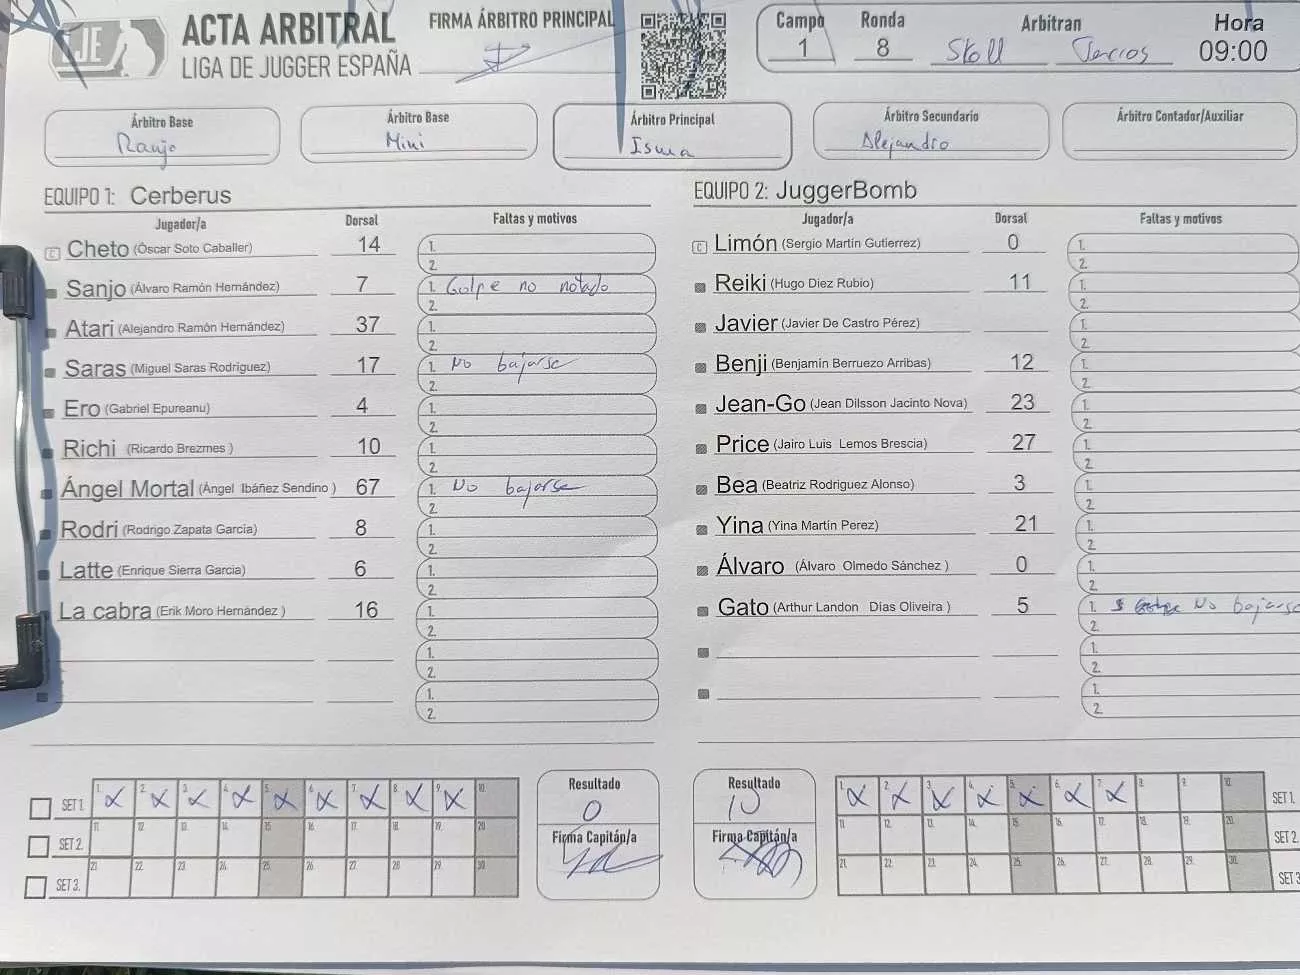 JE
ACTA ARBITRAL
LIGA DE JUGGER ESPAÑA
FIRMA ÁRBITRO PRINCIPAL
Campo Ronda Arbitran Hora
1 8 Skoll Tercios 09:00
Árbitro Base
Ranjo
Árbitro Base
Mini
Árbitro Principal
Isma
Árbitro Secundario
Alejandro
Árbitro Contador/Auxiliar
EQUIPO 1: Cerberus
Jugador/a Dorsal Faltas y motivos
C Cheto (Óscar Soto Caballer) 14 1.
2.
Sanjo (Álvaro Ramón Hernández) 7 1. Golpe no notado
2.
Atari (Alejandro Ramón Hernández) 37 1.
2.
Saras (Miguel Saras Rodriguez) 17 1. No bajarse
2.
Ero (Gabriel Epureanu) 4 1.
2.
Richi (Ricardo Brezmes ) 10 1.
2.
Ángel Mortal (Ángel Ibáñez Sendino ) 67 1. No bajarse
2.
Rodri (Rodrigo Zapata García) 8 1.
2.
Latte (Enrique Sierra García) 6 1.
2.
La cabra (Erik Moro Hernández ) 16 1.
2.
1.
2.
1.
2.
EQUIPO 2: JuggerBomb
Jugador/a Dorsal Faltas y motivos
C Limón (Sergio Martín Gutierrez) 0 1.
2.
Reiki (Hugo Diez Rubio) 11 1.
2.
Javier (Javier De Castro Pérez) 1.
2.
Benji (Benjamín Berruezo Arribas) 12 1.
2.
Jean-Go (Jean Dilsson Jacinto Nova) 23 1.
2.
Price (Jairo Luis Lemos Brescia) 27 1.
2.
Bea (Beatriz Rodriguez Alonso) 3 1.
2.
Yina (Yina Martín Perez) 21 1.
2.
Álvaro (Álvaro Olmedo Sánchez ) 0 1.
2.
Gato (Arthur Landon Días Oliveira ) 5 1. No bajarse
2.
1.
2.
1.
2.
SET 1. 1. X 2. X 3. X 4. X 5. X 6. X 7. X 8. X 9. X 10.
SET 2. 11. 12. 13. 14. 15. 16. 17. 18. 19. 20.
SET 3. 21. 22. 23. 24. 25. 26. 27. 28. 29. 30.
Resultado
0
Firma Capitán/a
Resultado
10
Firma Capitán/a
1. X 2. X 3. X 4. X 5. X 6. X 7. X 8. 9. 10. SET 1.
11. 12. 13. 14. 15. 16. 17. 18. 19. 20. SET 2.
21. 22. 23. 24. 25. 26. 27. 28. 29. 30. SET 3